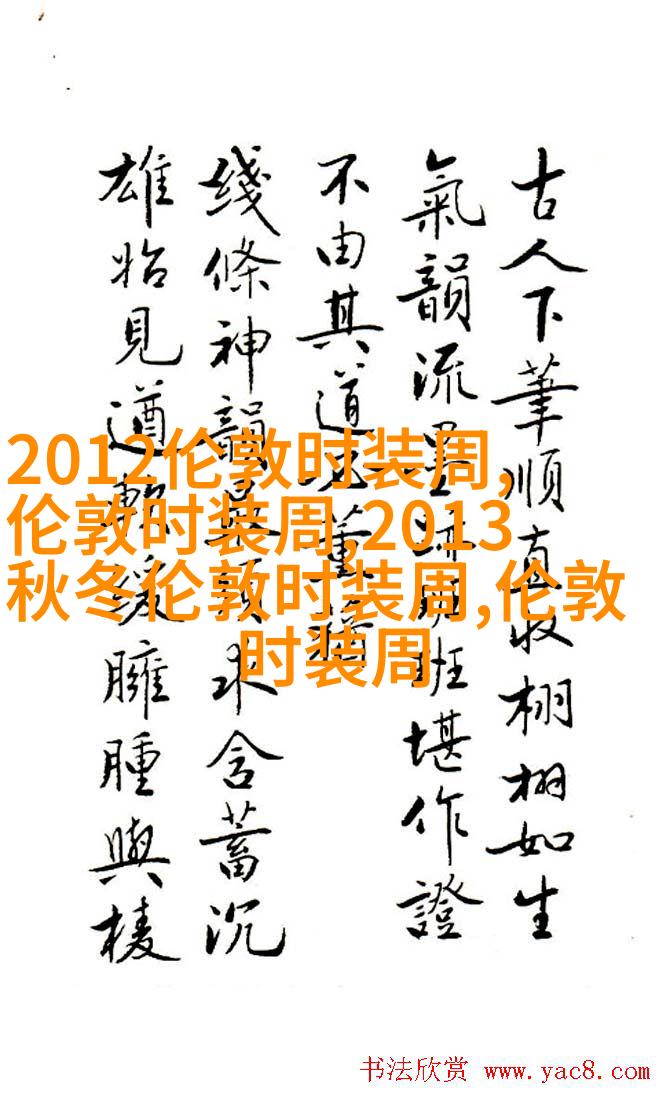 古人下筆順收栩栩如生
氣韻流墨班堪作證
不由其道
綫條神韻求含蓄沉
雄始見遒緩臃腫與棱
2012伦敦时装周,
伦敦时装周,2013
秋冬伦敦时装周,伦敦
时装周
书法欣赏 www.yac8.com